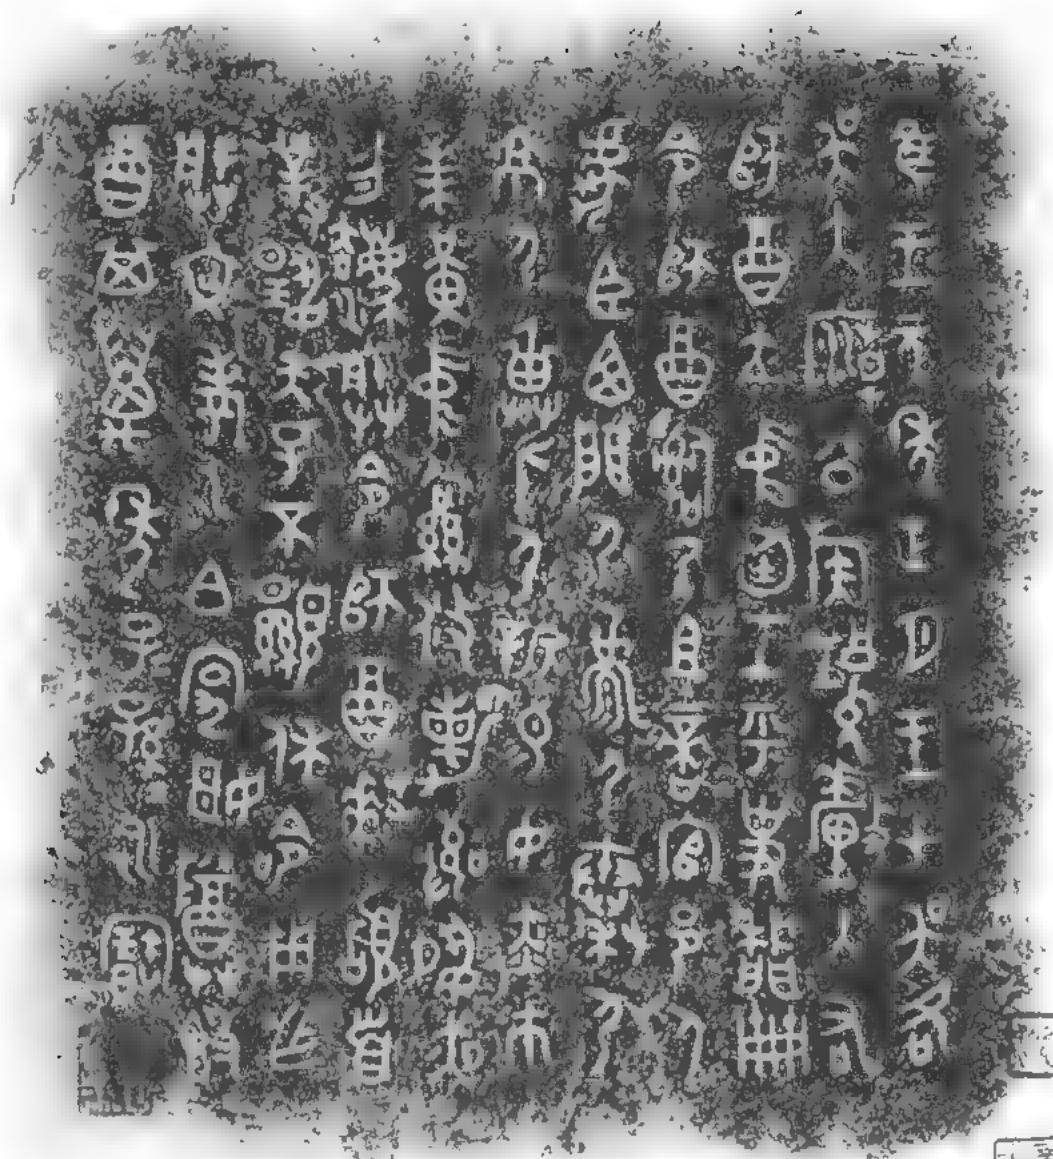 隹王元年正月王才吳各
吳大廟公族𤔲釐入右
師酉立中廷王乎史牆冊
命師酉嗣乃且啻官邑人
虎臣西門尸𩰫尸秦尸
京尸畀身尸新易女赤巿
朱黃中絅攸勒敬夙夜
勿灋朕令師酉拜𩒨首
對揚天子不顯休令用乍
朕文考乙白宄姬尊𣪘
酉其萬年子子孫孫永寶用